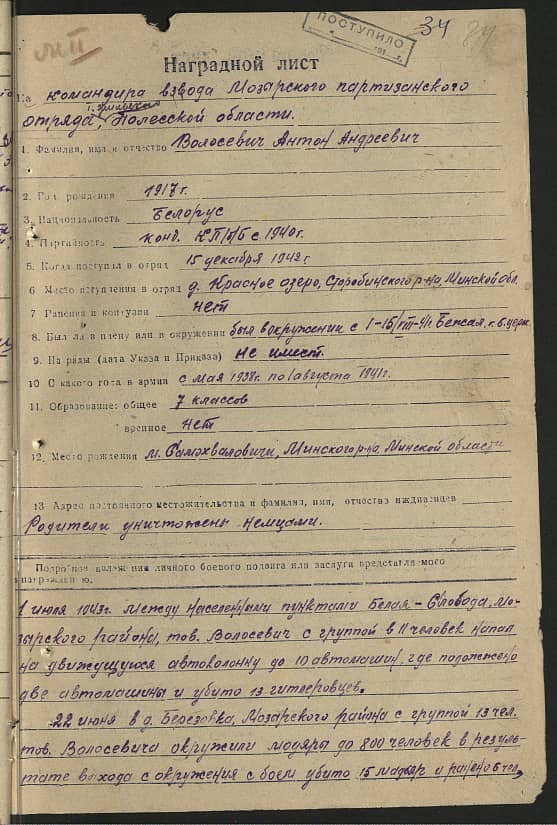 34
ПОСТУПИЛО
Наградной лист
На командира взвода Мозырского партизанского
отряда, Полесской области.
1. Фамилия, имя и отчество Волосевич Антон Андреевич
2. Год рождения 1917 г.
3. Национальность Белорус
4. Партийность канд. КП/б/Б с 1940г.
5. Когда поступил в отряд 15 декабря 1942 г.
6 Место поступления в отряд д. Красное озеро, Старобинского р-на, Минской обл.
7 Ранения и контузии нет
8. Был ли в плену или в окружении был в окружении с 1-15/VIII-41г
9. Награды (дата Указа и Приказа) не имеет.
10 С какого года в армии с мая 1938г. по 1 августа 1941г.
11. Образование: общее 7 классов
военное нет
12. Место рождения м. Самохваловичи, Минского р-на, Минской области
13 Адрес постоянного местожительства и фамилия, имя, отчество иждивенцев
Родители уничтожены немцами.
Подробное изложение личного боевого подвига или заслуги представляемого
к награждению.
1 июля 1943г. между населенными пунктами Белая - Слобода, Мо-
зырского района, тов. Волосевич с группой в 11 человек напал
на движущуюся автоколонну до 10 автомашин, где подожжено
две автомашины и убито 13 гитлеровцев.
22 июня в д. Березовка, Мозарского района с группой 13 чел.
тов. Волосевича окружили мадяры до 800 человек в резуль-
тате выхода с окружения с боем убито 15 мадьяр и ранено 6 чел,